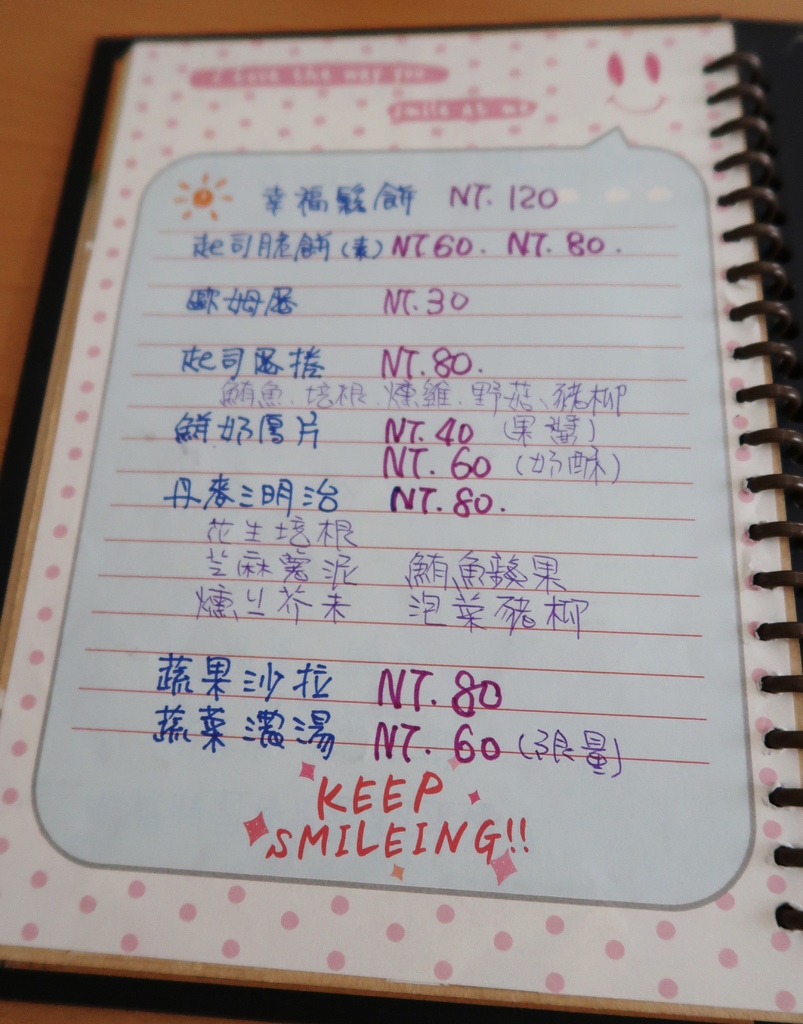 I love the way you
smile at me
幸福鬆餅 NT. 120
起司脆餅(素) NT 60. NT. 80.
歐姆蛋 NT. 30
起司蛋捲 NT. 80.
鮪魚、培根、燻雞、野菇、豬柳
鮮奶厚片 NT. 40 (果醬)
NT. 60 (奶酥)
丹麥三明治 NT. 80.
花生培根
芝麻薯泥 鮪魚蘋果
燻ㄐ芥末 泡菜豬柳
蔬果沙拉 NT. 80
蔬菜濃湯 NT. 60 (限量)
KEEP
SMILEING!!